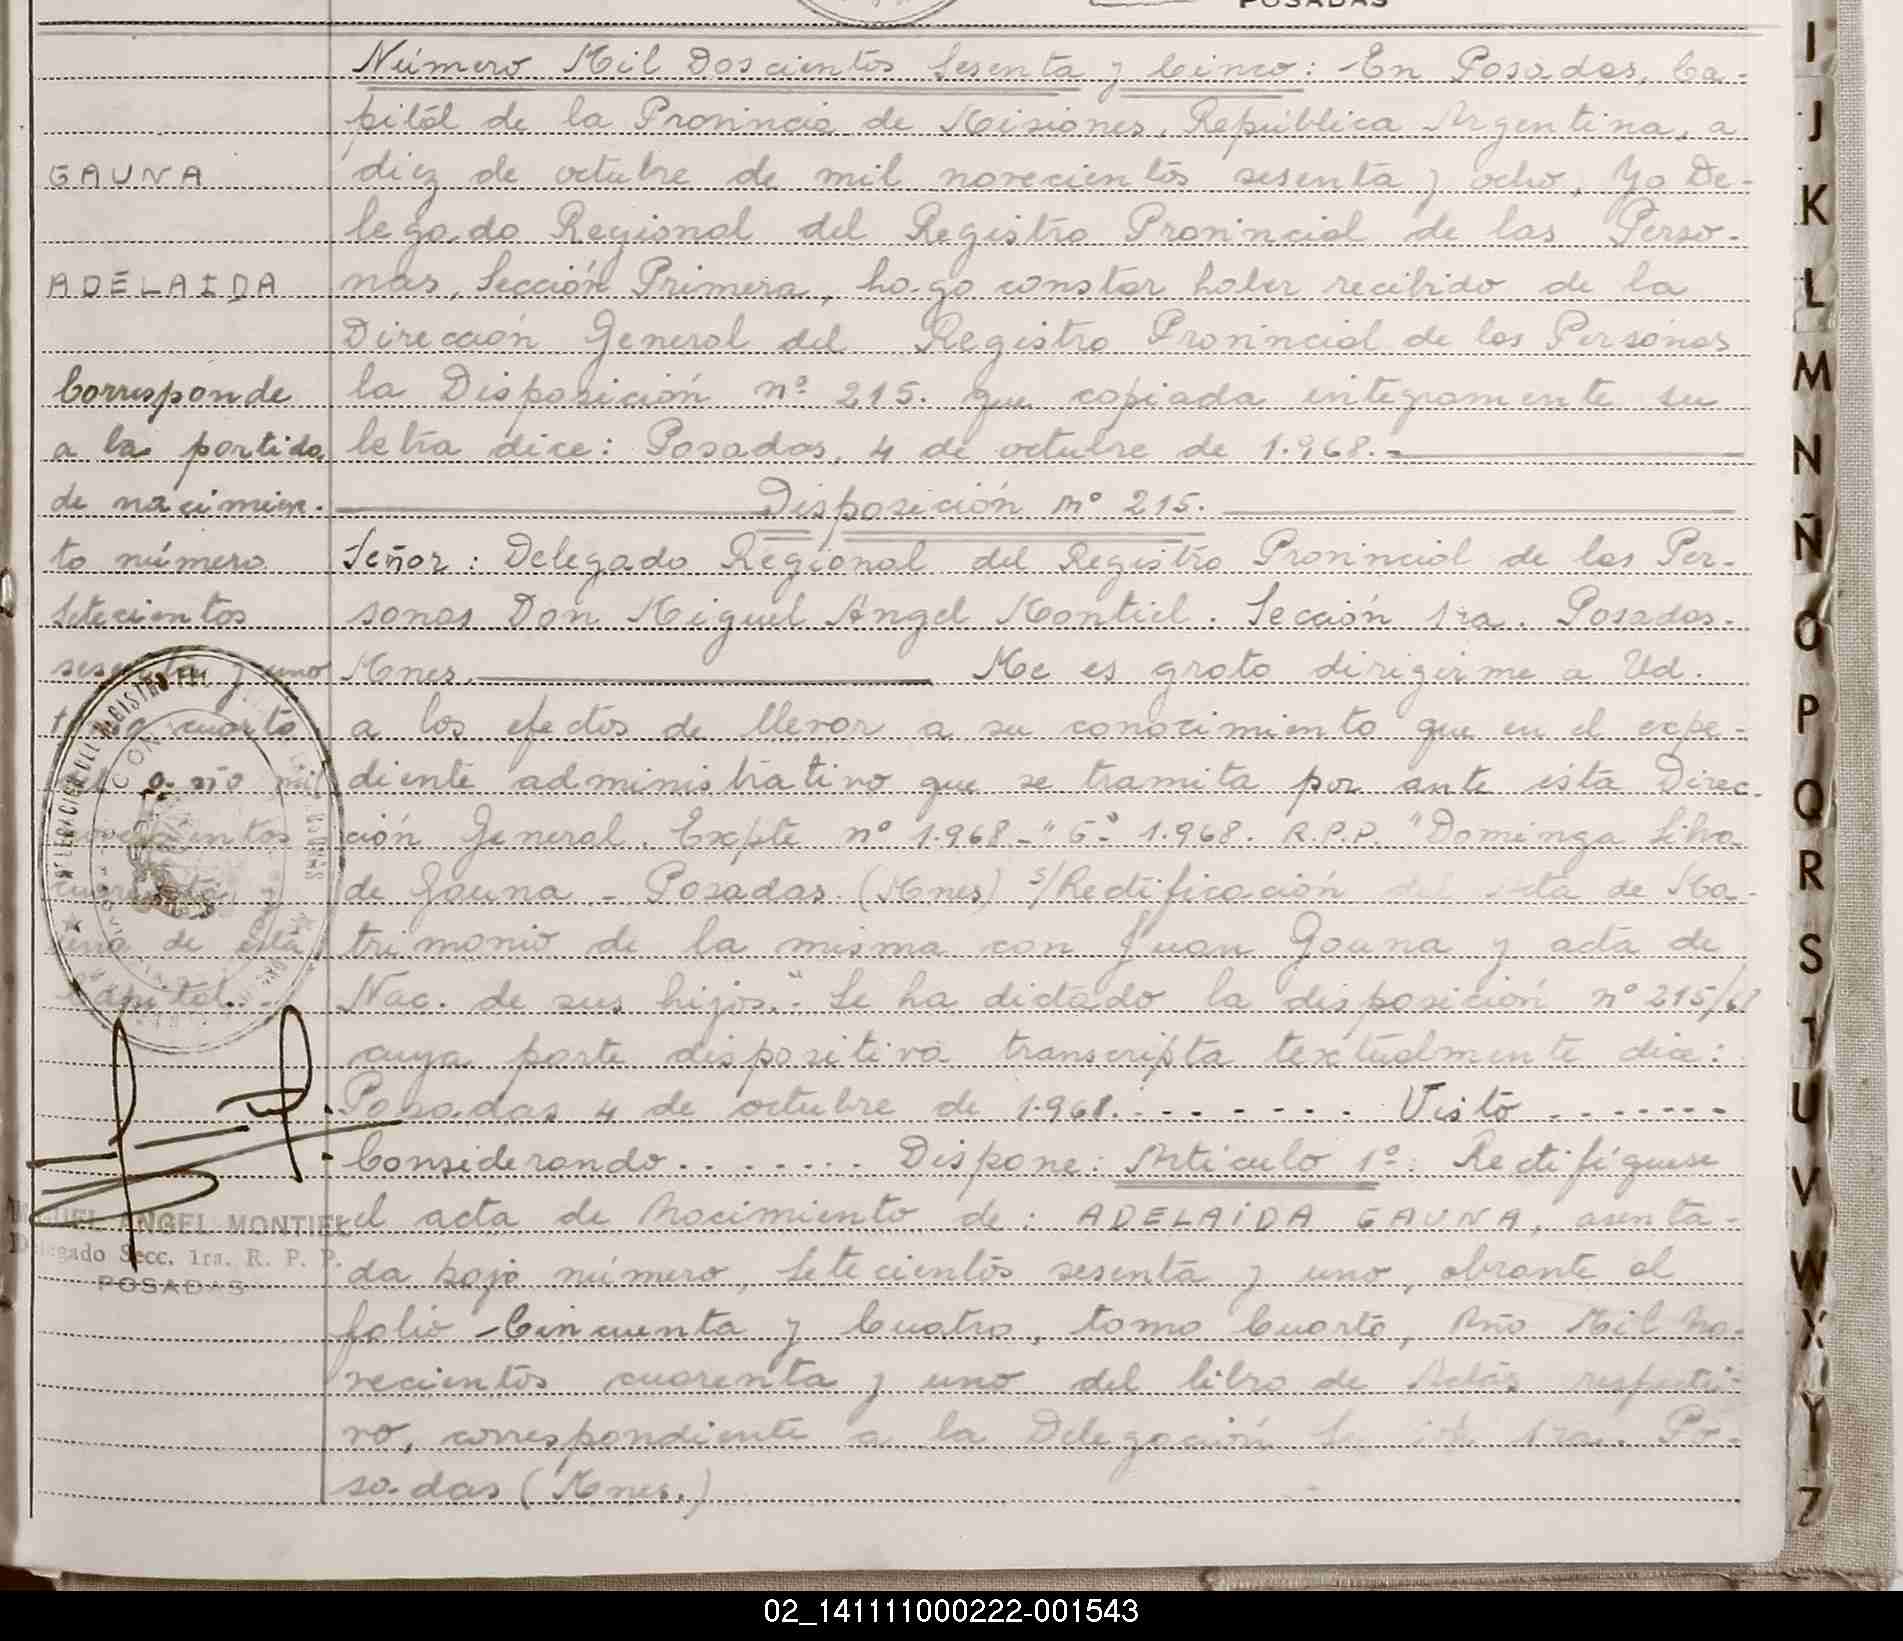 POSADAS
Número Mil Doscientos Sesenta y Cinco: En Posadas, Ca-
pitál de la Provincia de Misiones, República Argentina, a
GAUNA
diez de octubre de mil novecientos sesenta y ocho, Yo De-
legado Regional del Registro Provincial de las Perso-
ADELAIDA
nas, Sección Primera, hago constar haber recibido de la
Dirección General del Registro Provincial de las Personas
Corresponde
la Disposición nº 215. que copiada integramente su
a la partida
letra dice: Posadas, 4 de octubre de 1.968.-
de nacimien-
Disposición nº 215.
to número
Señor: Delegado Regional del Registro Provincial de las Per-
Setecientos
sonas Don Miguel Angel Montiel. Sección 1ra. Posadas.
sesenta y uno
Mnes. Me es grato dirigirme a Ud.
tomo cuarto
a los efectos de llevar a su conocimiento que en el expe-
del año mil
diente administrativo que se tramita por ante esta Direc-
novecientos
ción General. Expte nº 1.968-"G" 1.968. R.P.P. "Dominga Silva
cuarenta y
de Gauna - Posadas. (Mnes) s/Rectificación del Acta de Ma-
uno de esta
trimonio de la misma con Juan Gauna y acta de
Capital.
Nac. de sus hijos." Se ha dictado la disposición nº 215/68
cuya parte dispositiva transcripta textualmente dice:
Posadas 4 de octubre de 1.968. - - - - - - - Visto - - - - - - -
Considerando. . . . . . . . Dispone: Artículo 1º: Rectifíquese
MIGUEL ANGEL MONTIEL
el acta de Nacimiento de: ADELAIDA GAUNA, asenta-
Delegado Secc. 1ra. R. P. P.
POSADAS
da bajo número, Setecientos sesenta y uno, obrante al
folio Cincuenta y Cuatro, tomo Cuarto, Año Mil No-
vecientos cuarenta y uno del libro de Actas respecti-
vo, correspondiente a la Delegación 1ra. Po-
sadas (Mnes.)
I
J
K
L
M
N
Ñ
O
P
Q
R
S
T
U
V
W
X
Y
Z
02_141111000222-001543